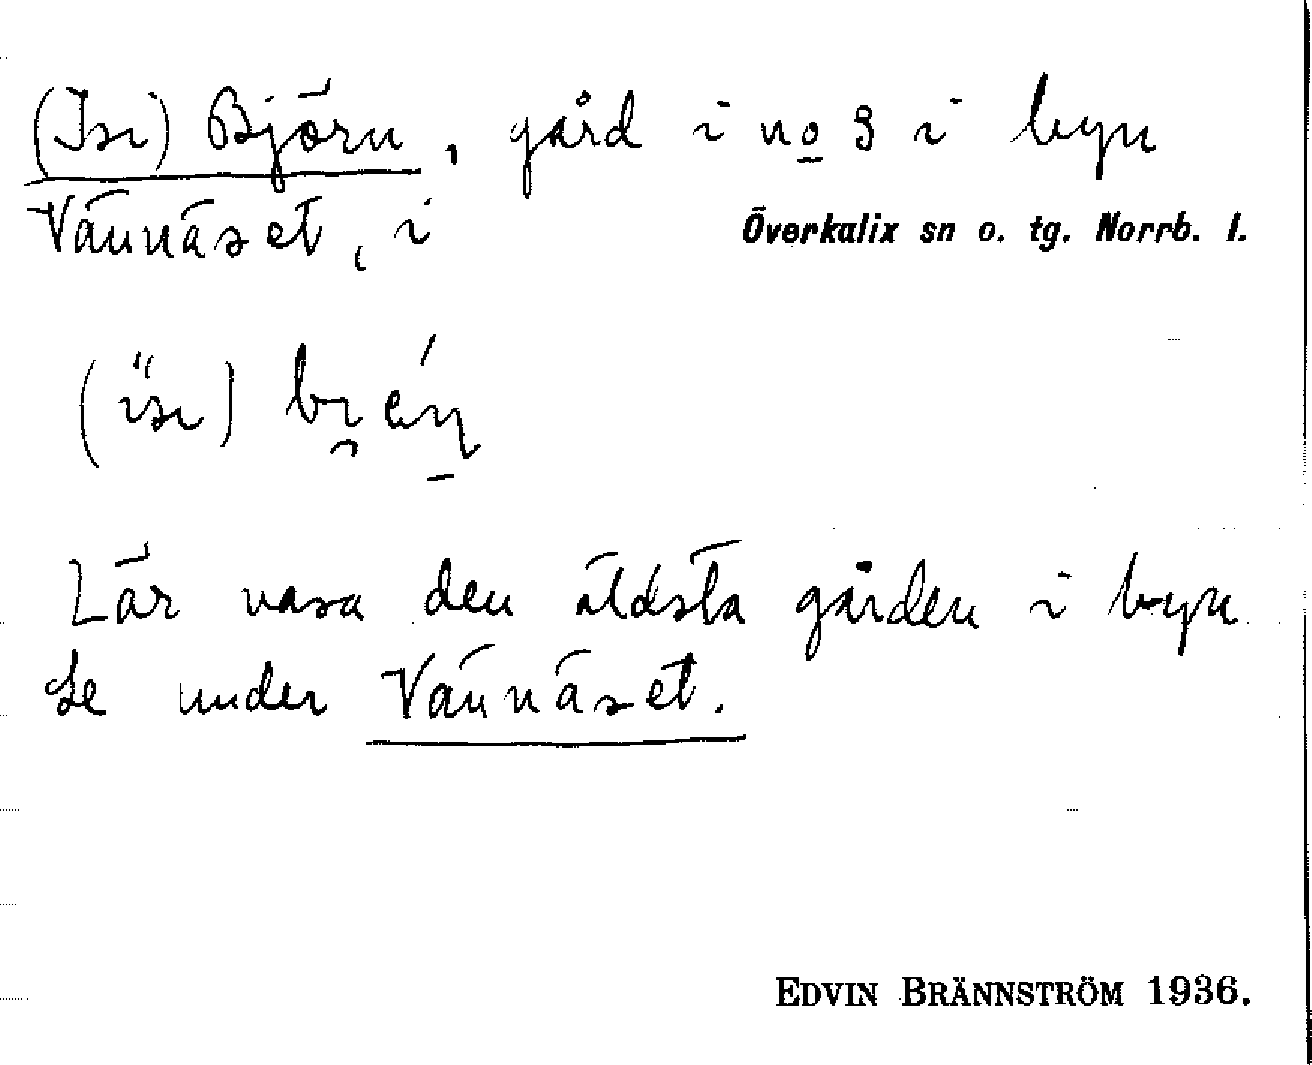 (Isi) Björn, gård i no 3 i byn
Vännäset, i Överkalix sn o. tg. Norrb. l.
Lär vara den äldsta gården i byn
Se under Vännäset.
EDVIN BRÄNNSTRÖM 1936.